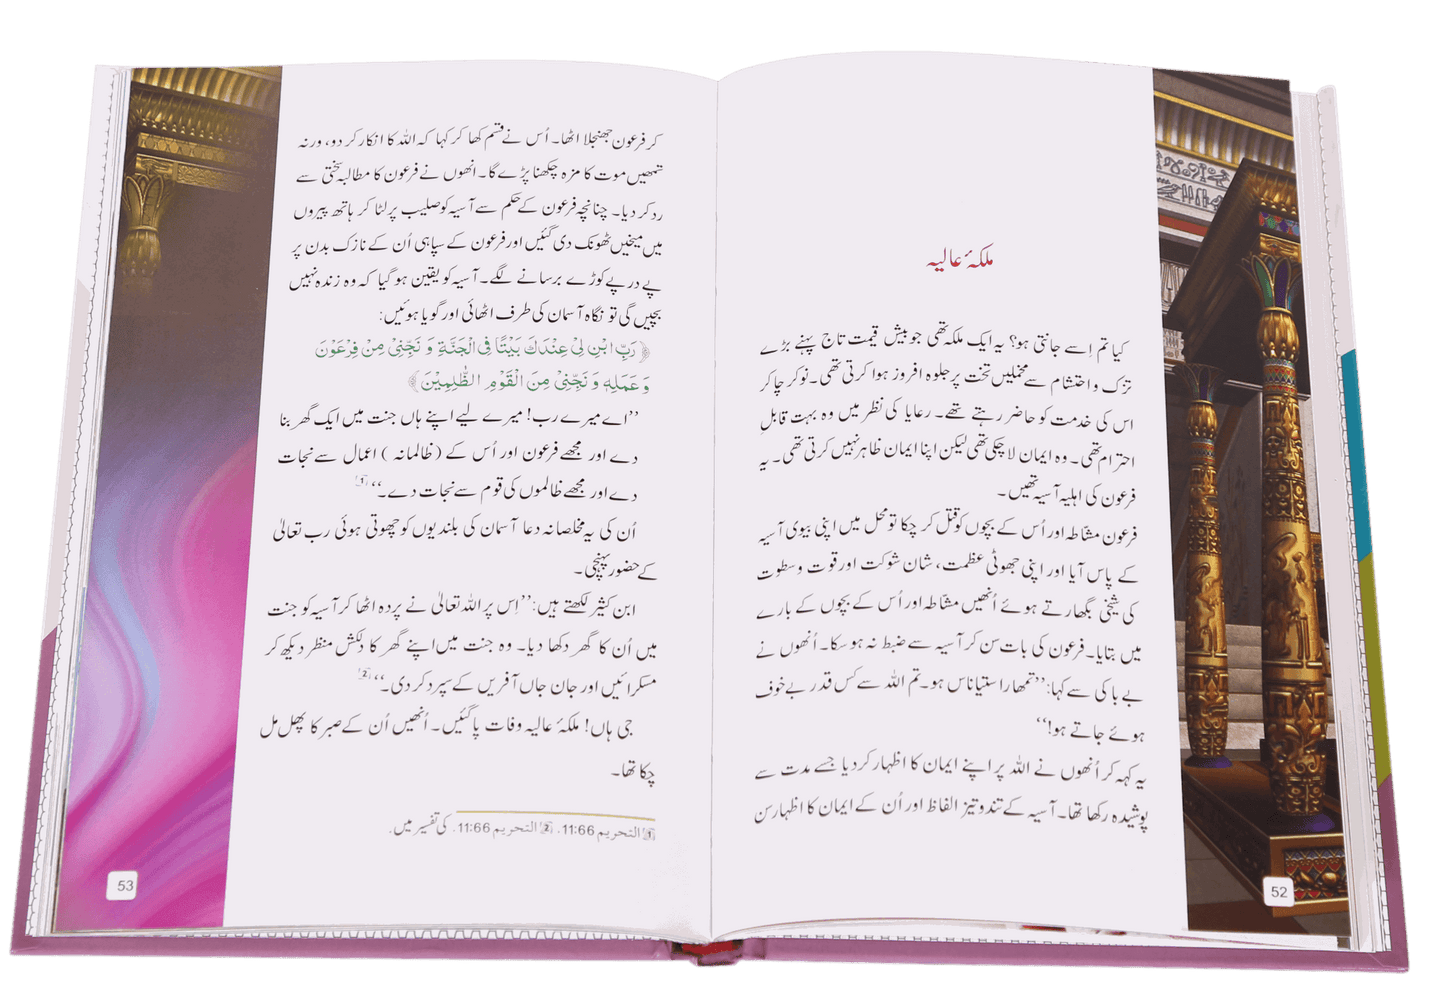 ملکۂ عالیہ
کیا تم اِسے جانتی ہو؟ یہ ایک ملکہ تھی جو بیش قیمت تاج پہنے بڑے
تزک و احتشام سے مخملیں تخت پر جلوہ افروز ہوا کرتی تھی۔ نوکر چاکر
اس کی خدمت کو حاضر رہتے تھے۔ رعایا کی نظر میں وہ بہت قابلِ
احترام تھی۔ وہ ایمان لا چکی تھی لیکن اپنا ایمان ظاہر نہیں کرتی تھی۔ یہ
فرعون کی اہلیہ آسیہ تھیں۔
فرعون مشاطہ اور اُس کے بچوں کو قتل کر چکا تو محل میں اپنی بیوی آسیہ
کے پاس آیا اور اپنی جھوٹی عظمت، شان شوکت اور قوت و سطوت
کی شیخی بگھارتے ہوئے اُنھیں مشاطہ اور اُس کے بچوں کے بارے
میں بتایا۔ فرعون کی بات سن کر آسیہ سے ضبط نہ ہوسکا۔ اُنھوں نے
بے باکی سے کہا: ’’تمھارا ستیاناس ہو۔ تم اللہ سے کس قدر بے خوف
ہوئے جاتے ہو!‘‘
یہ کہہ کر اُنھوں نے اللہ پر اپنے ایمان کا اظہار کر دیا جسے مدت سے
پوشیدہ رکھا تھا۔ آسیہ کے تند و تیز الفاظ اور اُن کے ایمان کا اظہار سن
52
کر فرعون جھنجلا اٹھا۔ اُس نے قسم کھا کر کہا کہ اللہ کا انکار کر دو، ورنہ
تمھیں موت کا مزہ چکھنا پڑے گا۔ انھوں نے فرعون کا مطالبہ سختی سے
رد کر دیا۔ چنانچہ فرعون کے حکم سے آسیہ کو صلیب پر لٹا کر ہاتھ پیروں
میں میخیں ٹھونک دی گئیں اور فرعون کے سپاہی اُن کے نازک بدن پر
پے در پے کوڑے برسانے لگے۔ آسیہ کو یقین ہو گیا کہ وہ زندہ نہیں
بچیں گی تو نگاہ آسمان کی طرف اٹھائی اور گویا ہوئیں:
﴿ رَبِّ ابْنِ لِيْ عِنْدَكَ بَيْتًا فِي الْجَنَّةِ وَ نَجِّنِيْ مِنْ فِرْعَوْنَ
وَ عَمَلِهٖ وَ نَجِّنِيْ مِنَ الْقَوْمِ الظّٰلِمِيْنَ ﴾
’’اے میرے رب! میرے لیے اپنے ہاں جنت میں ایک گھر بنا
دے اور مجھے فرعون اور اُس کے (ظالمانہ) اعمال سے نجات
دے اور مجھے ظالموں کی قوم سے نجات دے۔‘‘ [1]
اُن کی یہ مخلصانہ دعا آسمان کی بلندیوں کو چھوتی ہوئی رب تعالیٰ
کے حضور پہنچی۔
ابن کثیر لکھتے ہیں: ’’اِس پر اللہ تعالیٰ نے پردہ اٹھا کر آسیہ کو جنت
میں اُن کا گھر دکھا دیا۔ وہ جنت میں اپنے گھر کا دلکش منظر دیکھ کر
مسکرائیں اور جان جاں آفریں کے سپرد کر دی۔‘‘ [2]
جی ہاں! ملکۂ عالیہ وفات پا گئیں۔ اُنھیں اُن کے صبر کا پھل مل
چکا تھا۔
[1] التحریم 11:66. [2] التحریم 11:66. کی تفسیر میں.
53